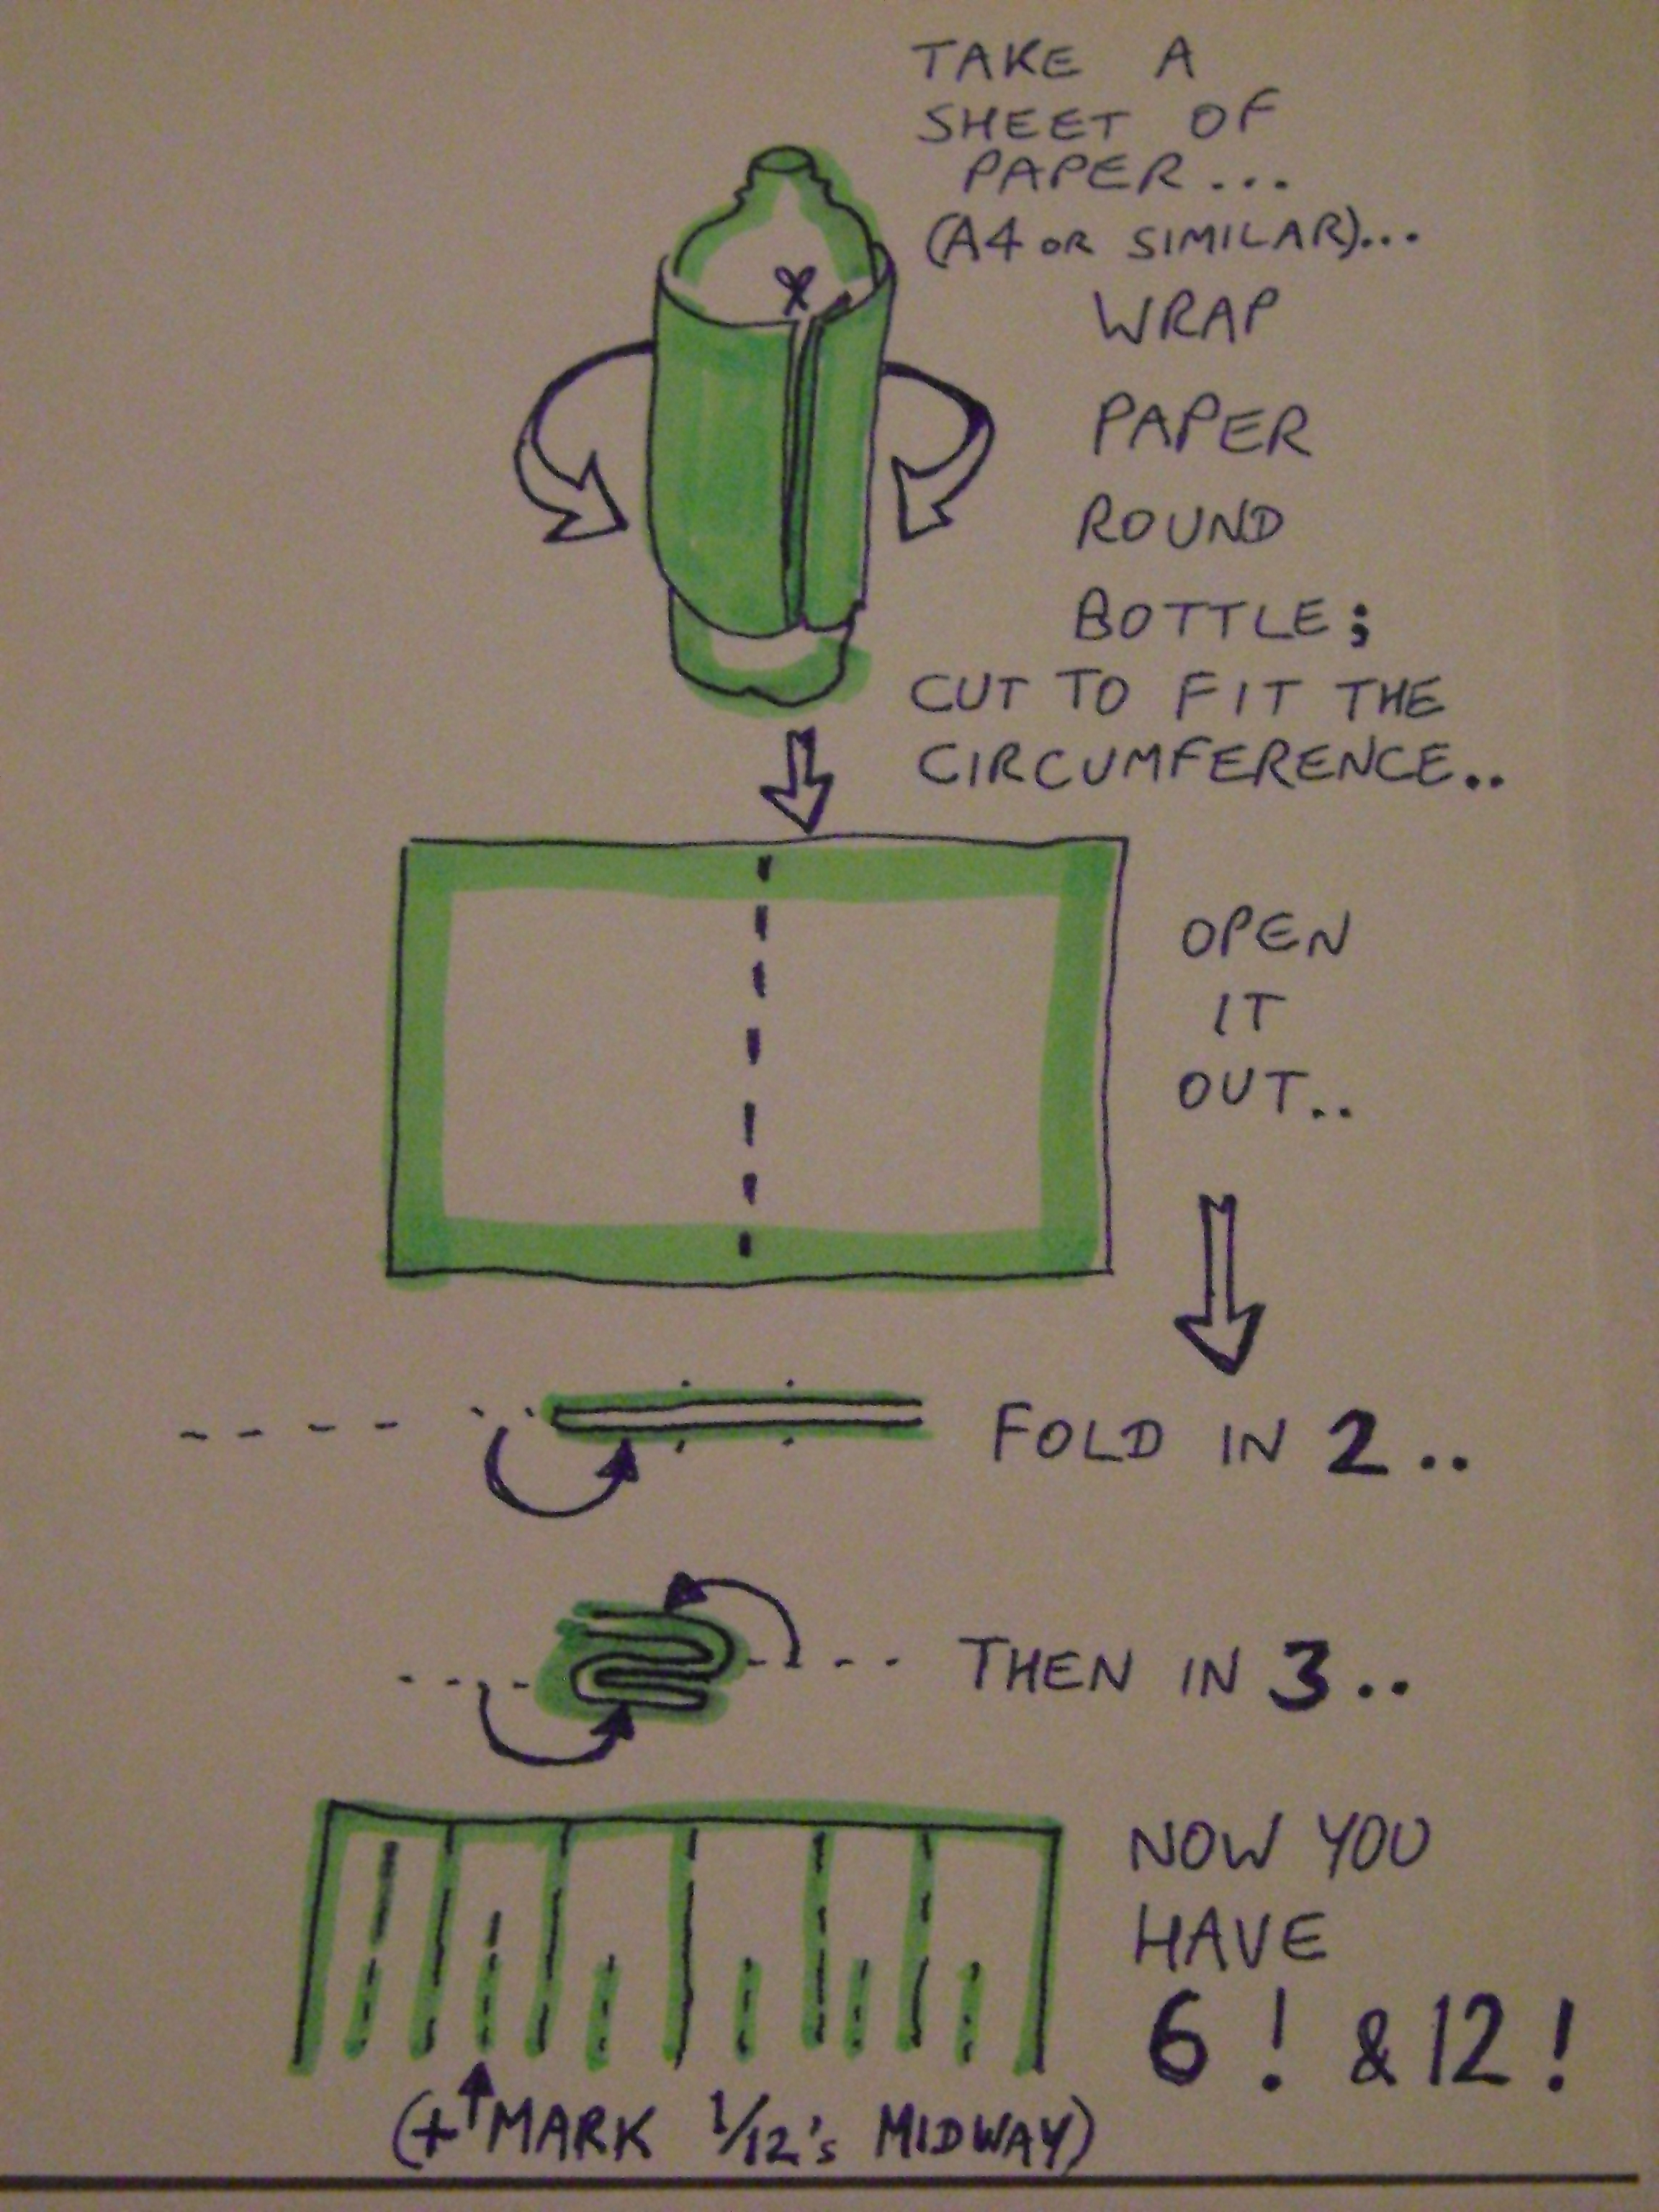 TAKE A
SHEET OF
PAPER...
(A4 OR SIMILAR)...
WRAP
PAPER
ROUND
BOTTLE;
CUT TO FIT THE
CIRCUMFERENCE..
OPEN
IT
OUT..
FOLD IN 2..
THEN IN 3..
NOW YOU
HAVE
6! & 12!
(+ MARK 1/12's MIDWAY)